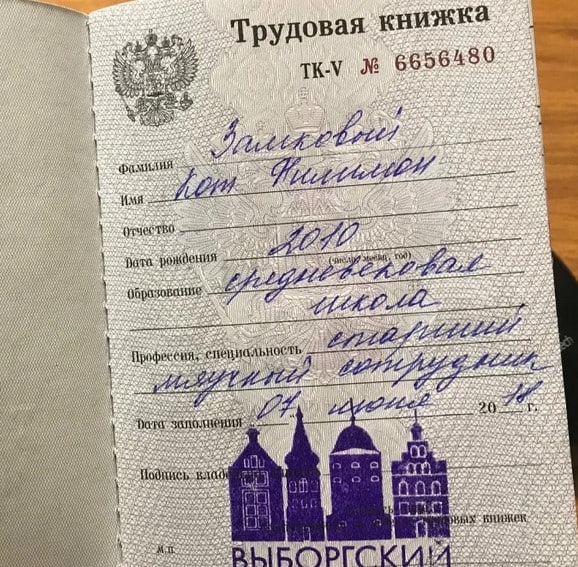 Трудовая книжка
ТК-V № 6656480
Фамилия Замковый
Имя Кот Филимон
Отчество
Дата рождения 2010
(число, месяц, год)
Образование средневековая
школа
Профессия, специальность старший
мяучный сотрудник
Дата заполнения 07 июня 2018 г.
Подпись
книжек
М.П.
ВЫБОРГСКИЙ